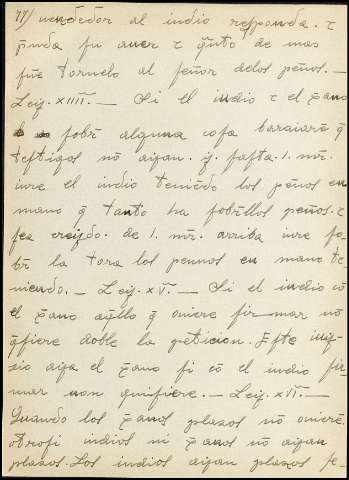 77/ uendedor al indio responda. τ
p̄nda su auer τ q̄nto de mas
fue tornelo al señor delos peños.—
Leij. xiiii.— Si el indio τ el xp̄ano
sobr̄ alguna cosa baraiarē q̄
testigos nō aijan. ij. fasta .1. mr̄.
iure el indio teniēdo los peños en
mano q̄ tanto ha sobrellos peños. τ
sea creijdo. de .1. mr̄. arriba iure so-
br̄ la tora los pennos en mano te-
niendo.— Leij. xv.— Si el indio cō
el xp̄ano aq̄llo q̄ ouiere firmar nō
q̄siere doble la peticion. Este mis-
sio aija el xp̄ano si cō el indio fir-
mar non quisiere.— Leij. xvi.—
Quando los xp̄anos plazos nō ouierē
otrosi indios ni xp̄anos nō aijan
plazos. Los indios aijan plazos se-